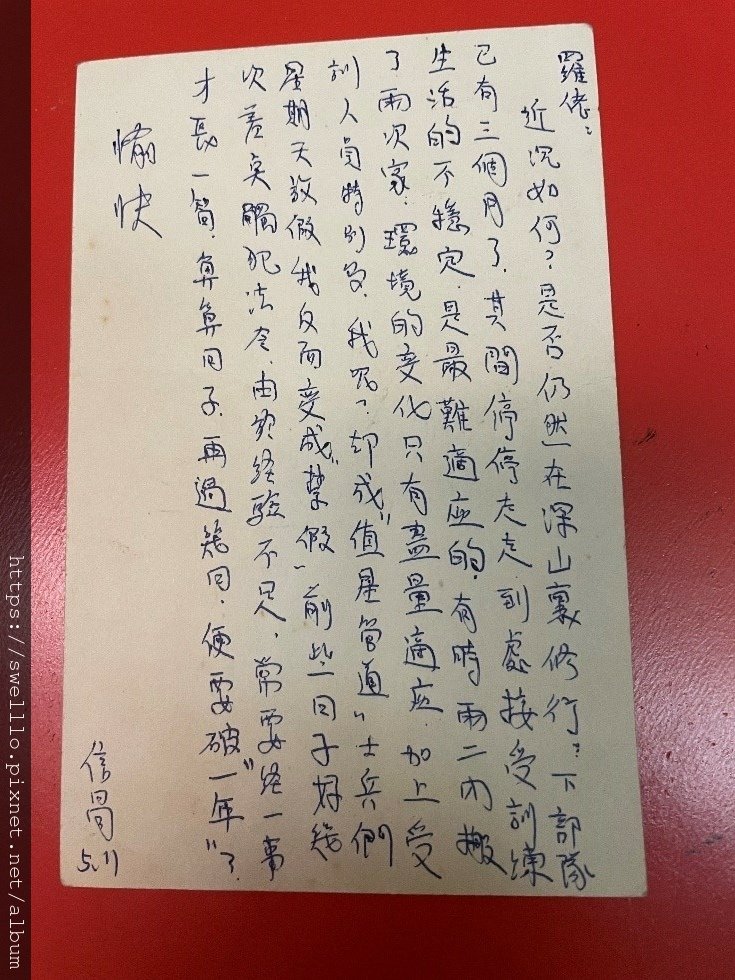 羅佬：
近況如何？是否仍然在深山裏修行？下部隊
已有三個月了．其間停停走走到處接受訓練
生活的不穩定．是最難適应的．有時兩二內搬
了兩次家．環境的变化只有盡量適应．加上受
訓人員特別多．我呢？却成"值星管道"士兵們
星期天放假我反而变成"禁假"前些日子好幾
次差奌觸犯法令．由於経驗不足，常要"経一事
才長一智．算算日子．再過幾日．便要破"一年"了．
愉快
信 5.11
https://swelllo.pixnet.net/album